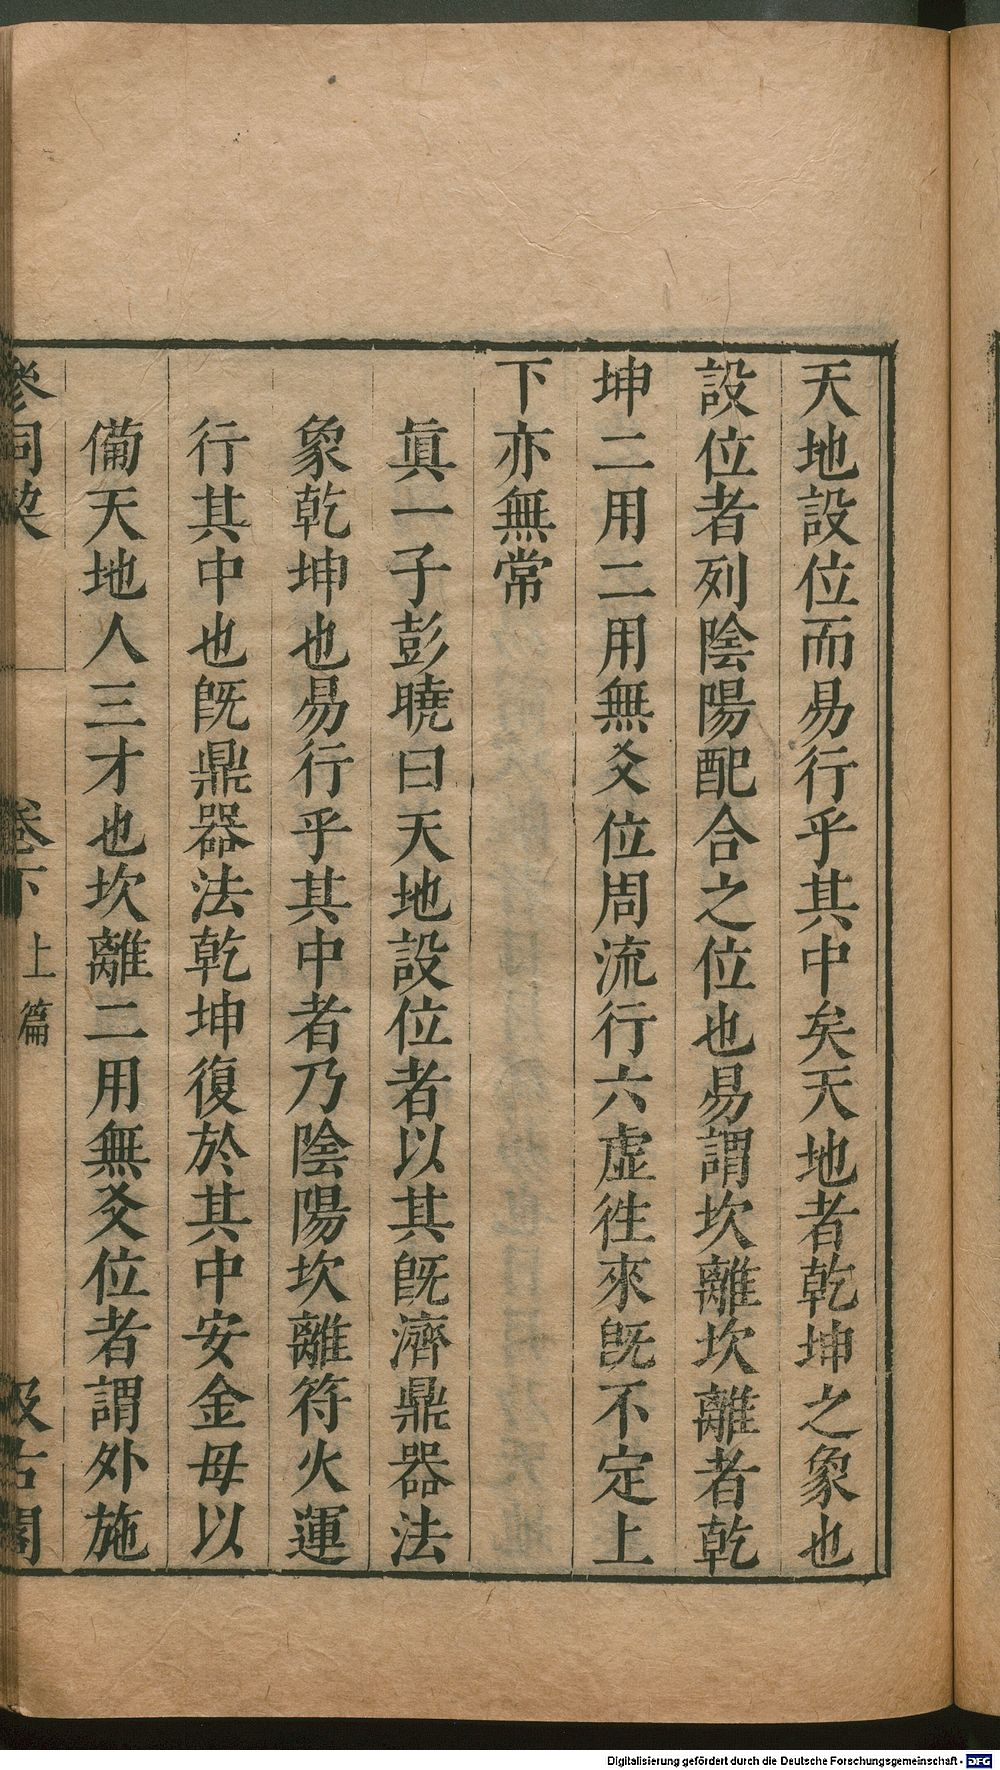 天地設位而易行乎其中矣天地者乾坤之象也
設位者列陰陽配合之位也易謂坎離坎離者乾
坤二用二用無爻位周流行六虛徃來旣不定上
下亦無常
眞一子彭曉曰天地設位者以其旣濟鼎器法
象乾坤也易行乎其中者乃陰陽坎離符火運
行其中也旣鼎器法乾坤復於其中安金母以
備天地人三才也坎離二用無爻位者謂外施
參同契
卷下
上篇
汲古閣
Digitalisierung gefördert durch die Deutsche Forschungsgemeinschaft - DFG